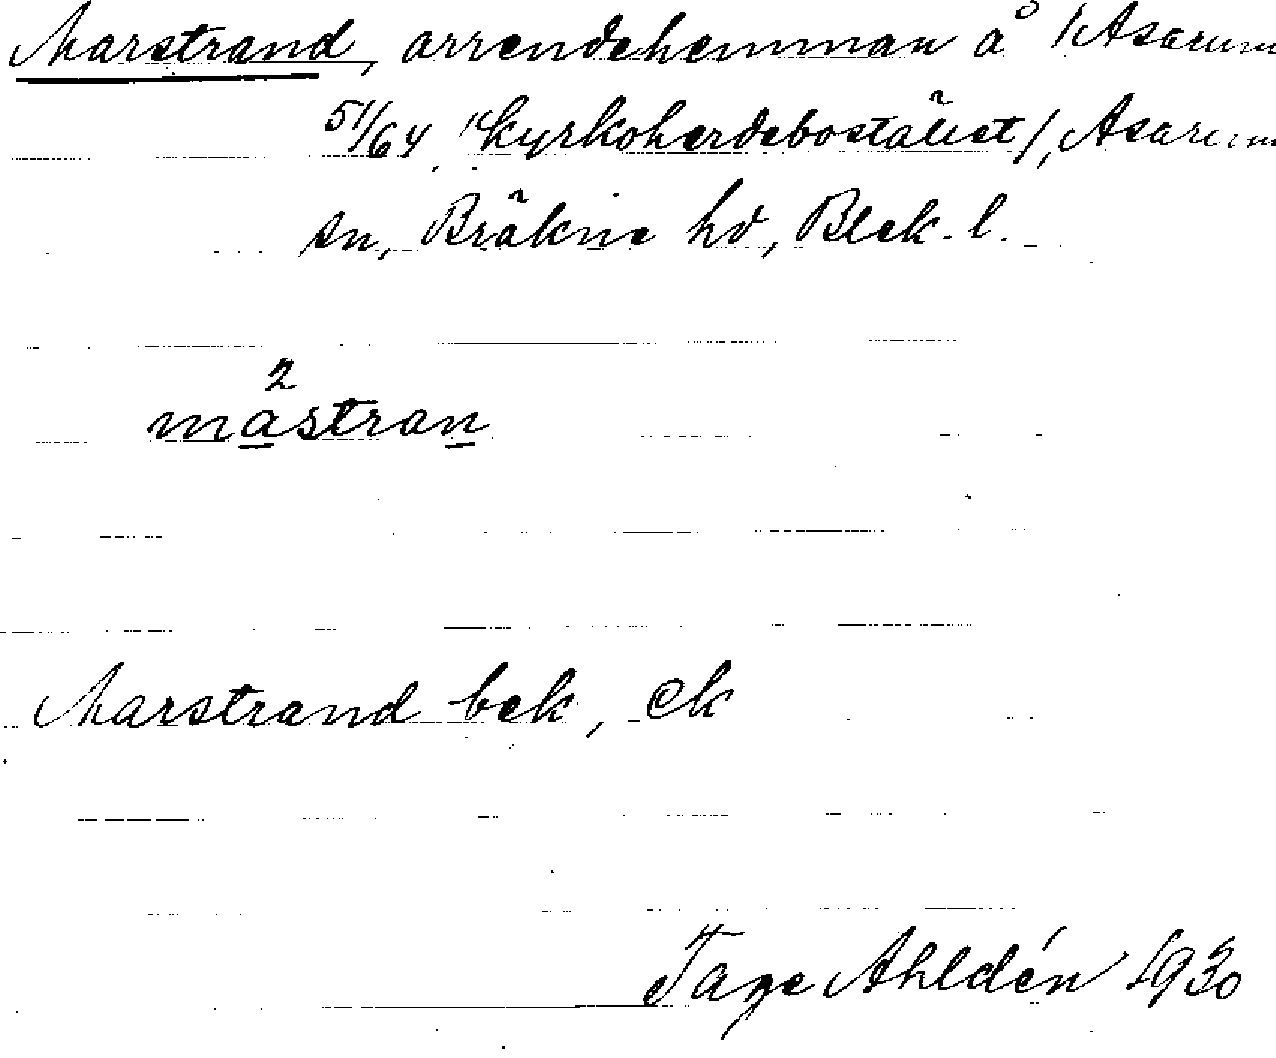 Marstrand, arrendehemman å /Asarum
51/64 "Kyrkoherdebostället/, Asarum
sn, Bräkne hd, Blek. l.
2
mastran
Marstrand bek, ek
Tage Ahldén 1930